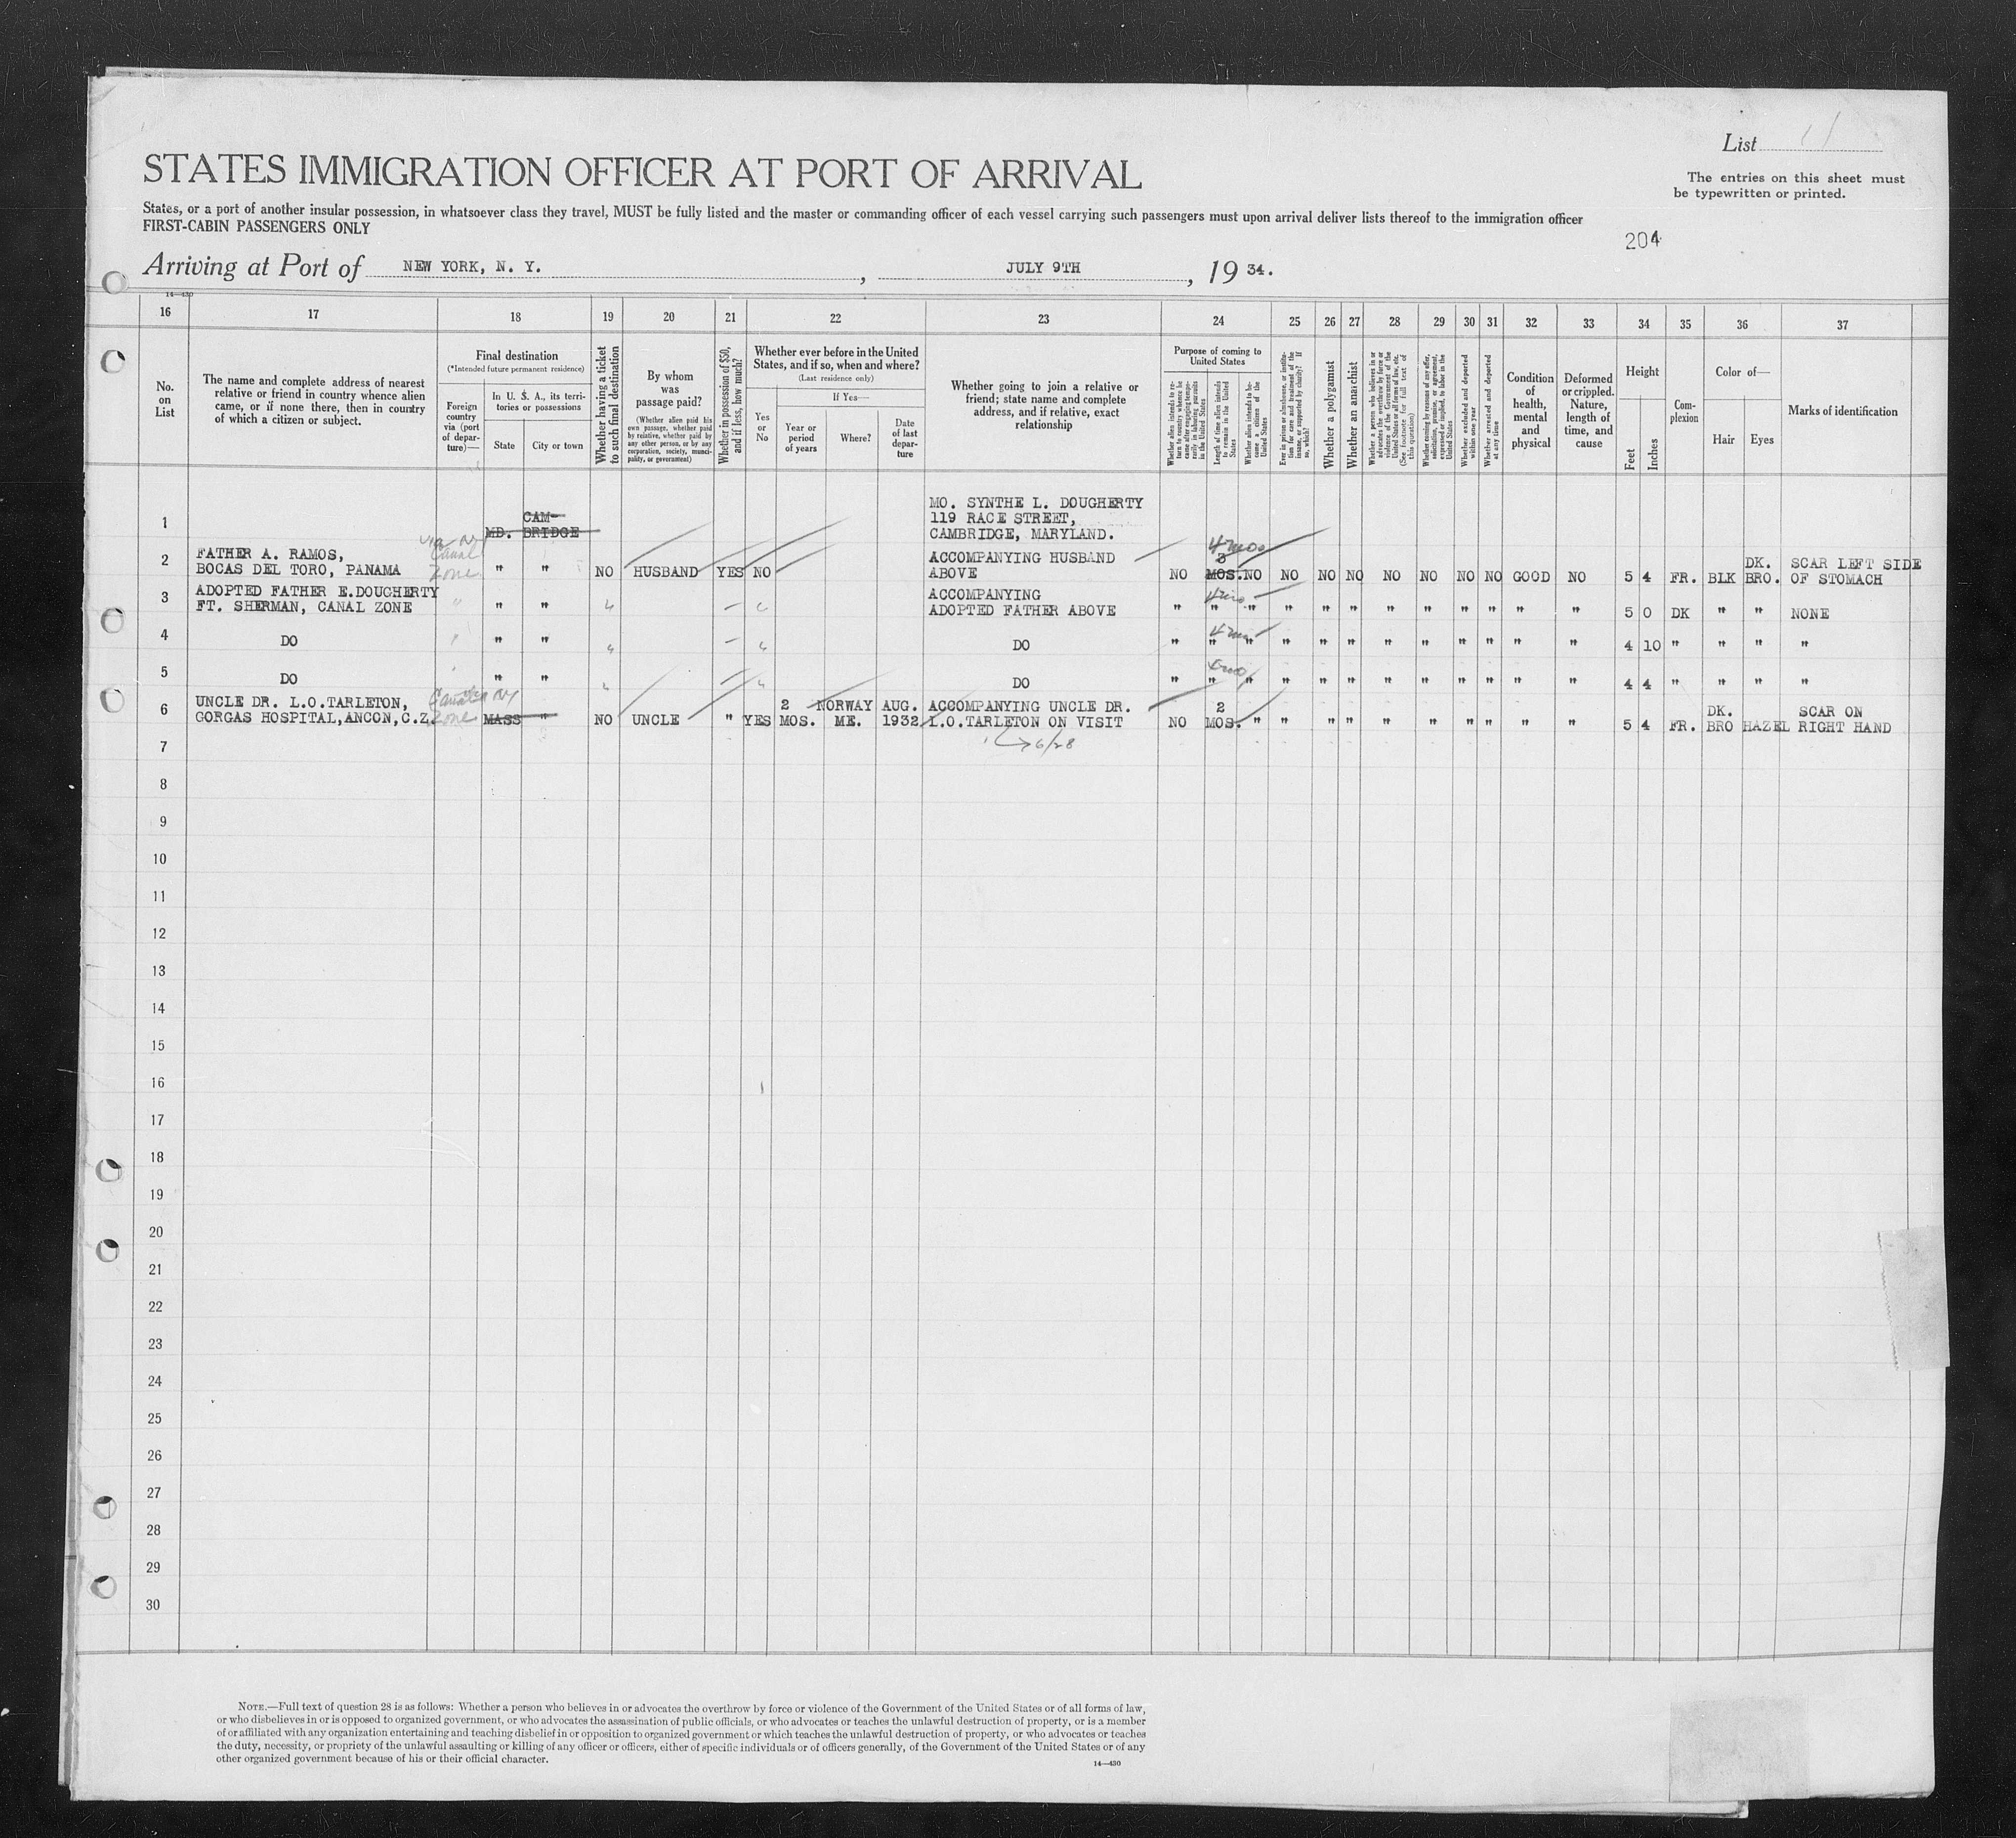 List 11
STATES IMMIGRATION OFFICER AT PORT OF ARRIVAL
The entries on this sheet must
be typewritten or printed.
States, or a port of another insular possession, in whatsoever class they travel, MUST be fully listed and the master or commanding officer of each vessel carrying such passengers must upon arrival deliver lists thereof to the immigration officer
FIRST-CABIN PASSENGERS ONLY
204
Arriving at Port of NEW YORK, N. Y. , JULY 9TH , 19 34.
14—430
16 17 18 19 20 21 22 23 24 25 26 27 28 29 30 31 32 33 34 35 36 37
No.
on
List
The name and complete address of nearest
relative or friend in country whence alien
came, or if none there, then in country
of which a citizen or subject.
Final destination
(*Intended future permanent residence)
Foreign
country
via (port
of depar-
ture)—
In U. S. A., its terri-
tories or possessions
State
City or town
Whether having a ticket
to such final destination
By whom
was
passage paid?
(Whether alien paid his
own passage, whether paid
by relative, whether paid by
any other person, or by any
corporation, society, munci-
pality, or government)
Whether in possession of $50,
and if less, how much?
Whether ever before in the United
States, and if so, when and where?
(Last residence only)
Yes
or
No
If Yes—
Year or
period
of years
Where?
Date
of last
depar-
ture
Whether going to join a relative or
friend; state name and complete
address, and if relative, exact
relationship
Purpose of coming to
United States
Whether alien intends to re-
turn to country whence he
came after engaging tempo-
rarily in laboring pursuits
in the United States
Length of time alien intends
to remain in the United
States
Whether alien intends to be-
come a citizen of the
United States
Ever in prison or almshouse, or institu-
tion for care and treatment of the
insane, or supported by charity? If
so, which?
Whether a polygamist
Whether an anarchist
Whether a person who believes in or
advocates the overthrow by force or
violence of the Government of the
United States or all forms of law, etc.
(See footnote for full text of
this question)
Whether coming by reasons of any offer,
solicitation, promise, or agreement,
expressed or implied, to labor in the
United States
Whether excluded and deported
within one year
Whether arrested and deported
at any time
Condition
of
health,
mental
and
physical
Deformed
or crippled.
Nature,
length of
time, and
cause
Height
Feet
Inches
Com-
plexion
Color of—
Hair
Eyes
Marks of identification
1 MD. CAM-
BRIDGE
MO. SYNTHE L. DOUGHERTY
119 RACE STREET,
CAMBRIDGE, MARYLAND.
via NY
Canal
Zone
2 FATHER A. RAMOS,
BOCAS DEL TORO, PANAMA " " NO HUSBAND YES NO
ACCOMPANYING HUSBAND
ABOVE
4 mos
NO 3 MOS. NO NO NO NO NO NO NO NO GOOD NO 5 4 FR. BLK DK. BRO. SCAR LEFT SIDE
OF STOMACH
3 ADOPTED FATHER E.DOUGHERTY
FT. SHERMAN, CANAL ZONE " " " " — "
ACCOMPANYING
ADOPTED FATHER ABOVE
4 mo
" " " " " " " " " " " " 5 0 DK " " NONE
4 DO " " " " — " DO 4 mo " " " " " " " " " " " " 4 10 " " " "
5 DO " " " " — " DO 4 mo " " " " " " " " " " " " 4 4 " " " "
6 UNCLE DR. L.O.TARLETON,
GORGAS HOSPITAL,ANCON,C.Z. Canal Zone via NY MASS " NO UNCLE " YES 2 MOS. NORWAY ME. AUG. 1932
ACCOMPANYING UNCLE DR.
L.O.TARLETON ON VISIT
NO 2 MOS. " " " " " " " " " " 5 4 FR. DK. BRO HAZEL SCAR ON
RIGHT HAND
6/28
7
8
9
10
11
12
13
14
15
16
17
18
19
20
21
22
23
24
25
26
27
28
29
30
NOTE.—Full text of question 28 is as follows: Whether a person who believes in or advocates the overthrow by force or violence of the Government of the United States or of all forms of law,
or who disbelieves in or is opposed to organized government, or who advocates the assassination of public officials, or who advocates or teaches the unlawful destruction of property, or is a member
of or affiliated with any organization entertaining and teaching disbelief in or opposition to organized government or which teaches the unlawful destruction of property, or who advocates or teaches
the duty, necessity, or propriety of the unlawful assaulting or killing of any officer or officers, either of specific individuals or of officers generally, of the Government of the United States or of any
other organized government because of his or their official character.
14—430